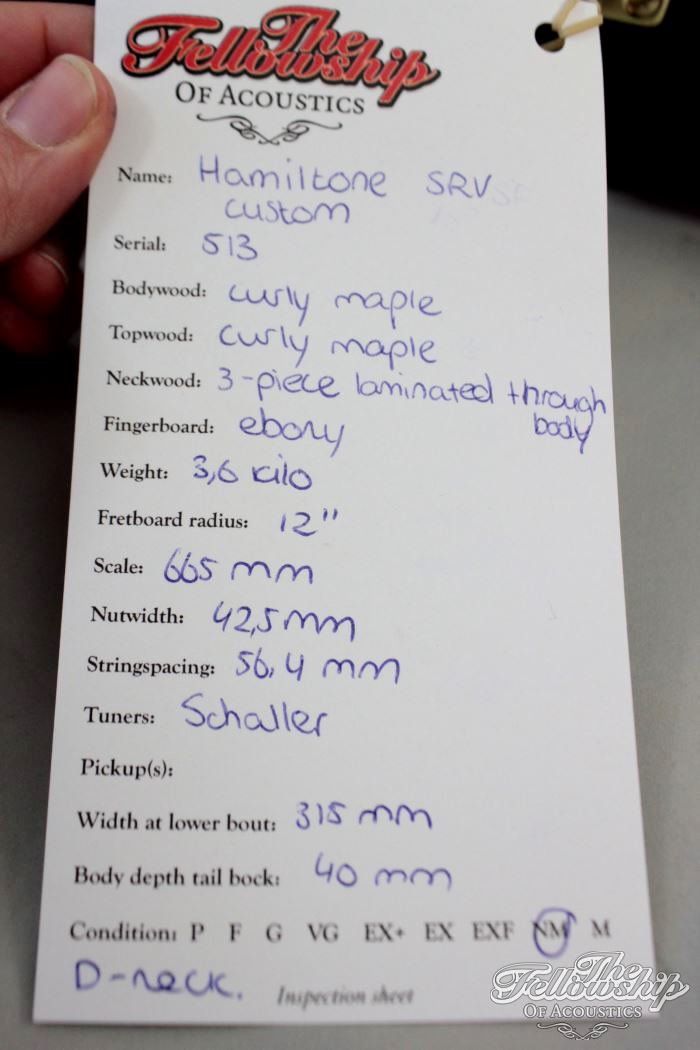 The
Fellowship
OF ACOUSTICS
Name: Hamiltone SRV
custom
Serial: 513
Bodywood: curly maple
Topwood: curly maple
Neckwood: 3-piece laminated through
body
Fingerboard: ebony
Weight: 3,6 kilo
Fretboard radius: 12"
Scale: 665 mm
Nutwidth: 42,5 mm
Stringspacing: 56,4 mm
Tuners: Schaller
Pickup(s):
Width at lower bout: 315 mm
Body depth tail bock: 40 mm
Condition: P F G VG EX+ EX EXF NM M
D-neck.
Inspection sheet
The
Fellowship
OF ACOUSTICS